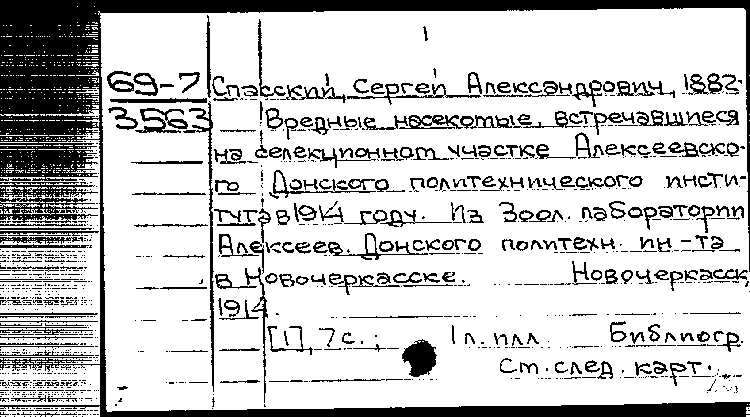 69-7 Спасский, Сергей Александрович, 1882-
3563 Вредные насекомые, встречавшиеся
на селекционном участке Алексеевско-
го Донского политехнического инсти-
тута в 1914 году. Из Зоол. лаборатории
Алексеев. Донского политехн. ин-та
в Новочеркасске. Новочеркасск,
1914.
[1], 7 с.; 1 л. илл. Библиогр.
См. след. карт.